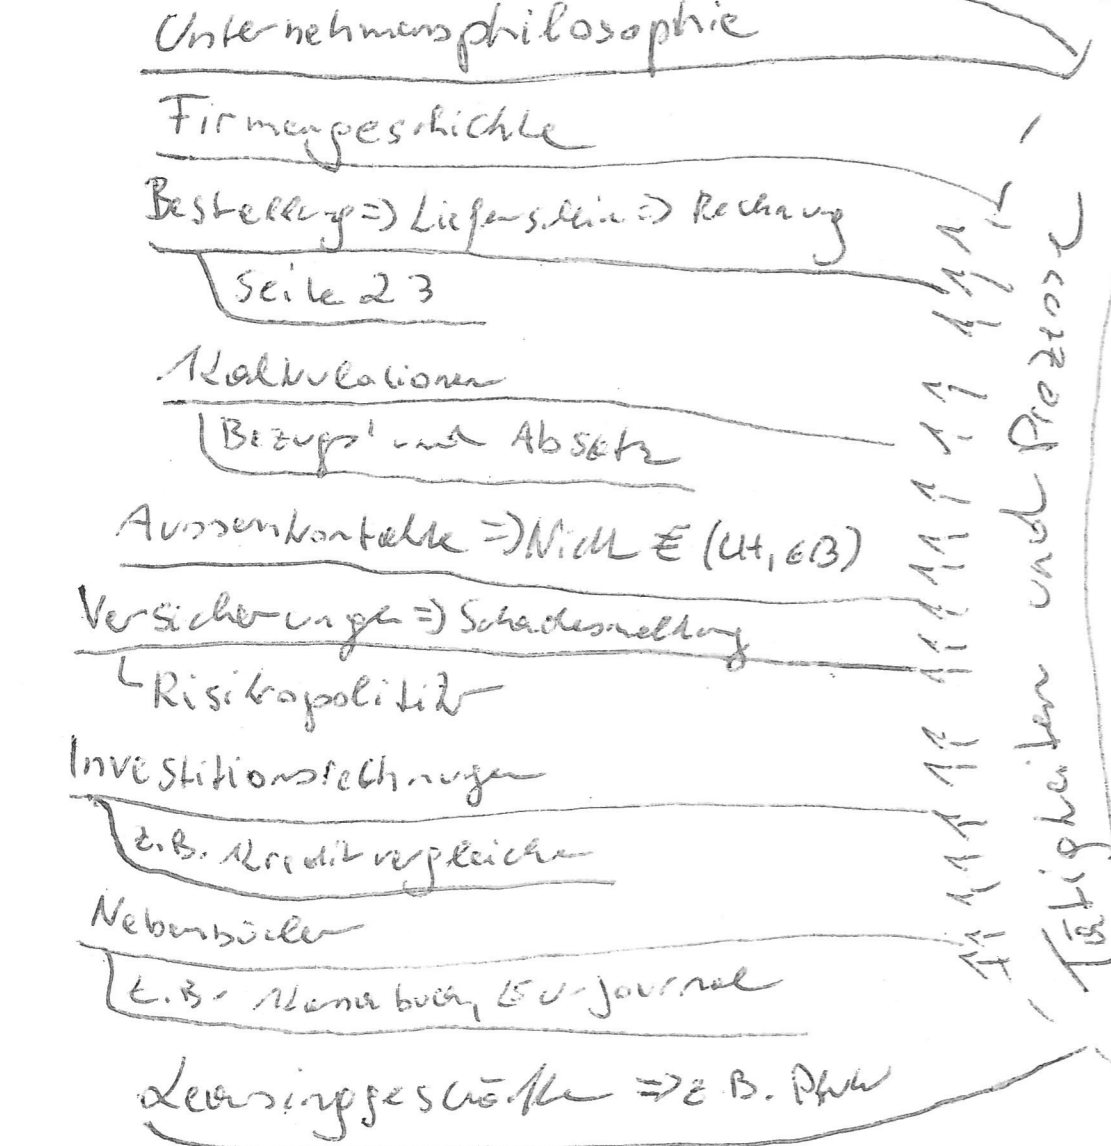 Unternehmensphilosophie
Firmengeschichte
Bestellung => Lieferschein => Rechnung
Seite 23
Kalkulationen
Bezugs' und Absatz
Aussenkontakte => Nicht € (LH, EB)
Versicherungen => Schadesmeldung
Risikopolitik
Investitionsrechnungen
z.B. Kreditvergleiche
Nebenbücher
z.B. Kassabuch, EU-Journal
Leasinggeschäfte => z.B. PKW
Tätigkeiten und Prozesse